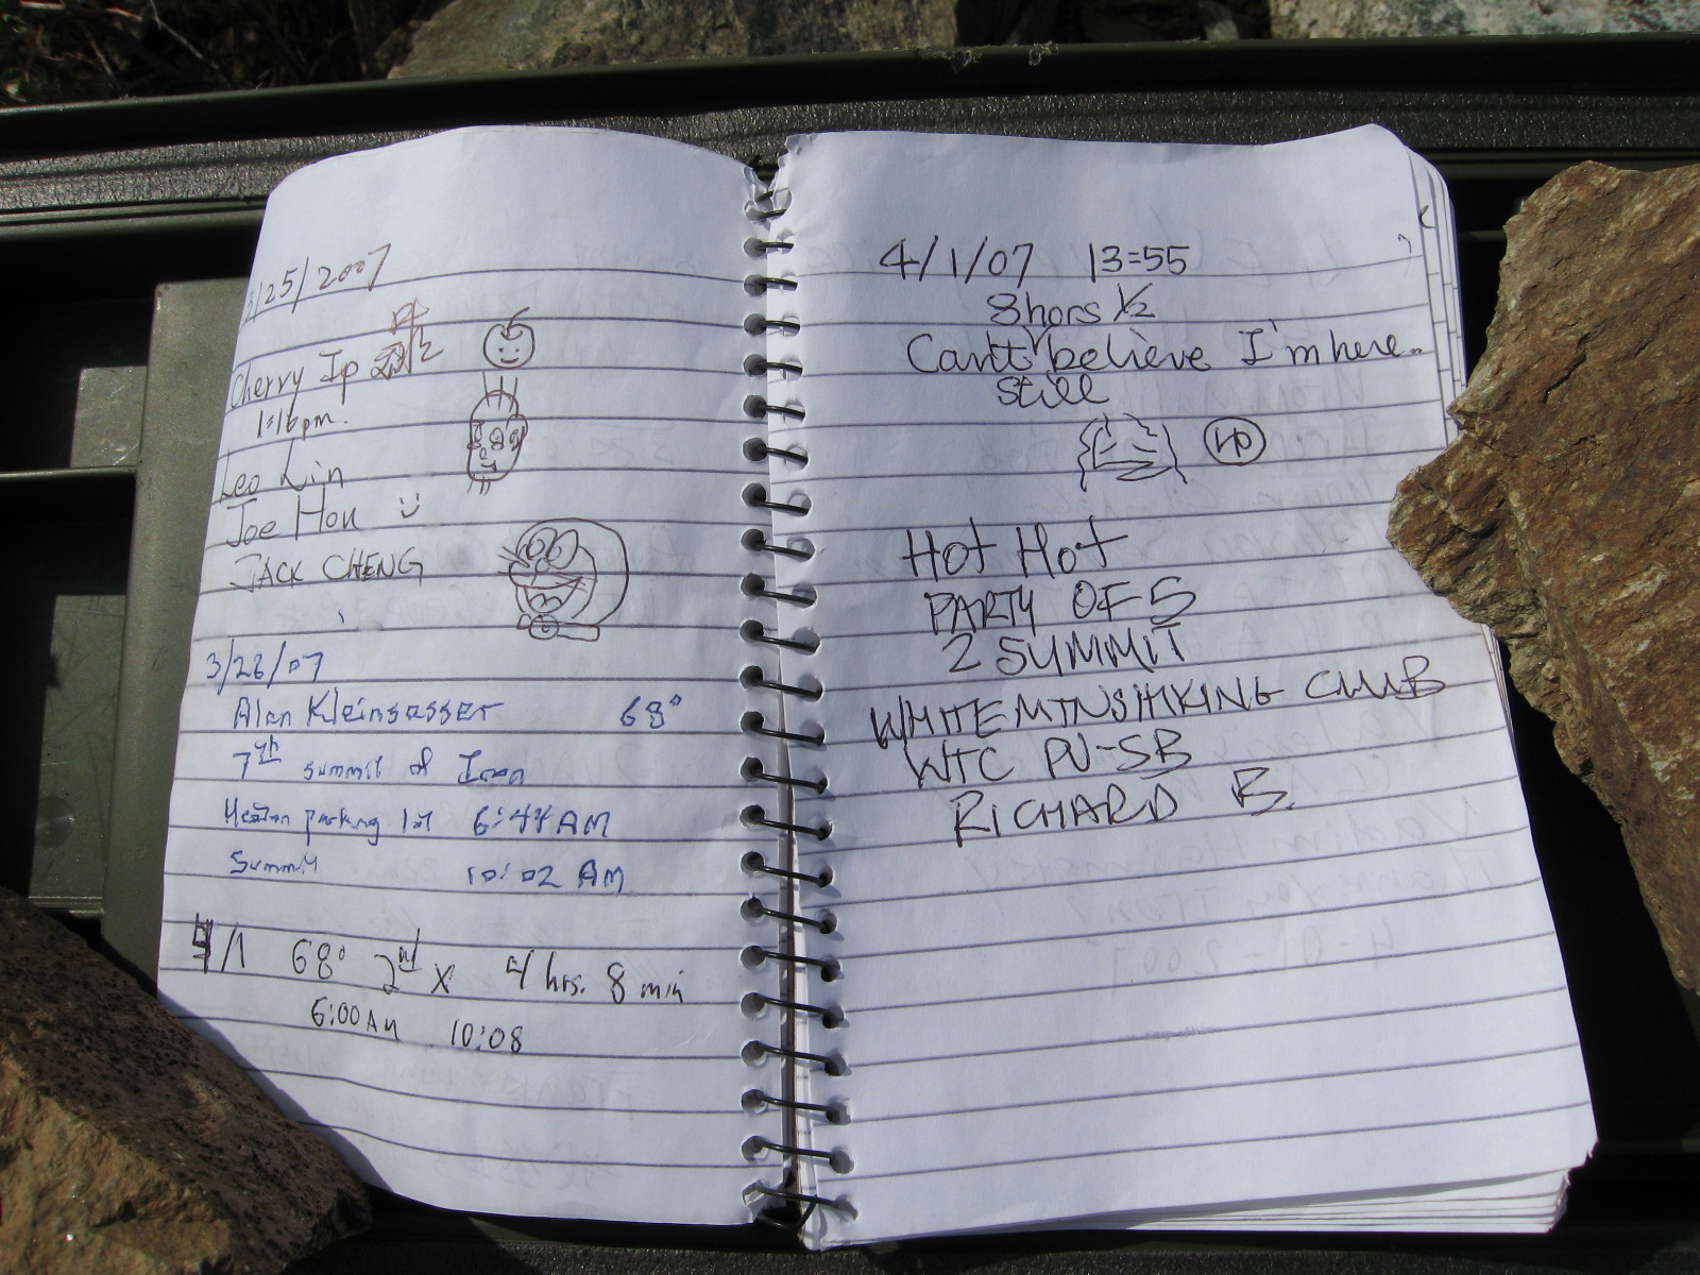 3/25/2007
Cherry Ip
1:16pm.
Leo Lin
Joe Hou
JACK CHENG
3/28/07
Alan Kleinsasser 68°
7th summit of Iron
Heaton parking lot 6:44 AM
Summit 10:02 AM
4/1 68° 2nd X 4 hrs. 8 min
6:00 AM 10:08
4/1/07 13:55
8hors 1/2
Can't believe I'm here.
still
Hot Hot
PARTY OF 5
2 SUMMIT
WHITE MTNS HIKING CLUB
WTC PV-SB
RICHARD B.